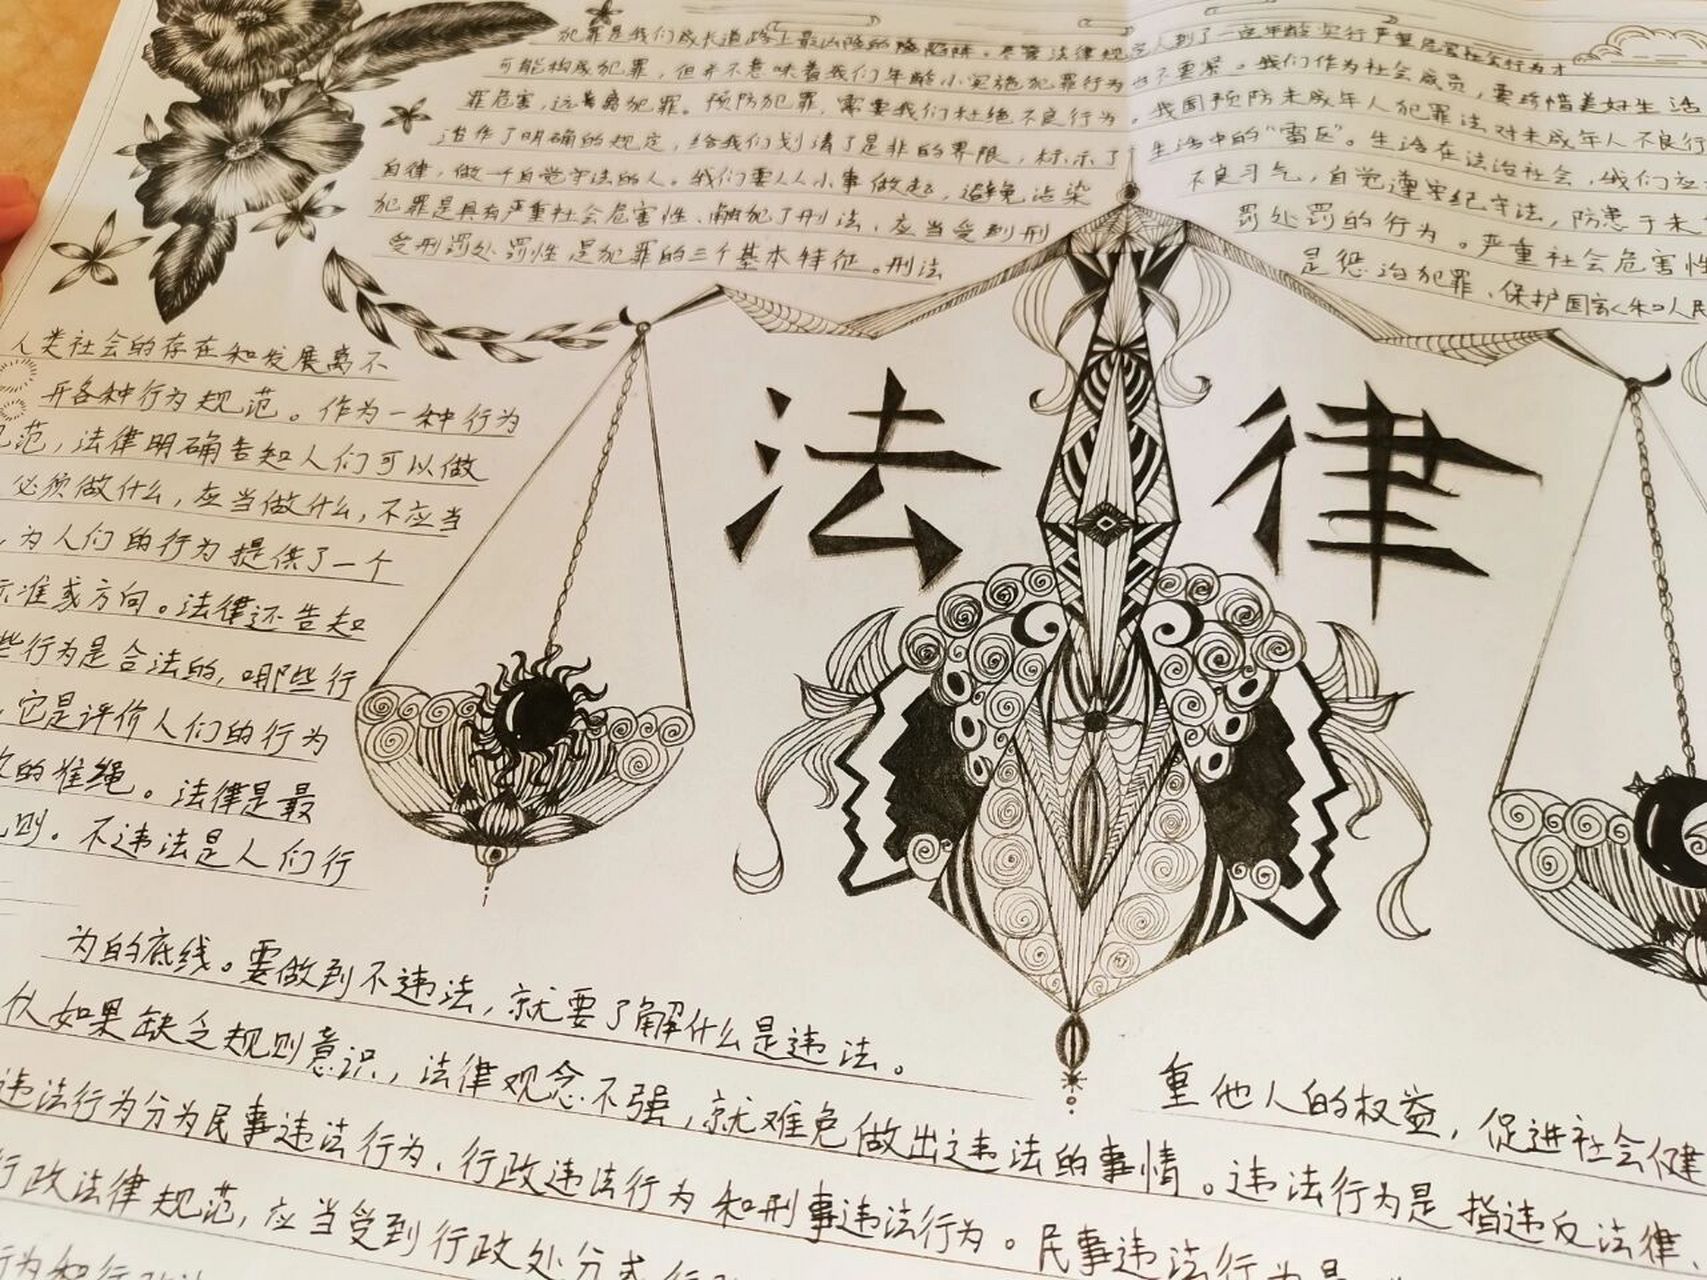 犯罪是我们成长道路上最凶险的陷阱。尽管法律规定人到了一定年龄实行严重危害社会行为才
可能构成犯罪，但并不意味着我们年龄小实施犯罪行为也不要紧。我们作为社会成员，要珍惜美好生活
罪危害，远离犯罪。预防犯罪，需要我们杜绝不良行为。我国预防未成年人犯罪法对未成年人不良行
治作了明确的规定，给我们划清了是非的界限，标示了生活中的“雷区”。生活在法治社会，我们应
自律，做一个自觉守法的人。我们要从小事做起，避免沾染不良习气，自觉遵守纪守法，防患于未
犯罪是具有严重社会危害性、触犯了刑法、应当受到刑罚处罚的行为。严重社会危害性
受刑罚处罚性是犯罪的三个基本特征。刑法是惩治犯罪、保护国家和人民
法律
人类社会的存在和发展离不
开各种行为规范。作为一种行为
规范，法律明确告知人们可以做
必须做什么，应当做什么，不应当
，为人们的行为提供了一个
标准或方向。法律还告知
些行为是合法的，哪些行
，它是评价人们的行为
的准绳。法律是最
则。不违法是人们行
为的底线。要做到不违法，就要了解什么是违法。
如果缺乏规则意识，法律观念不强，就难免做出违法的事情。违法行为是指违反法律、
违法行为分为民事违法行为、行政违法行为和刑事违法行为。民事违法行为是
行政法律规范，应当受到行政处分或行
行为和行政
重他人的权益，促进社会健